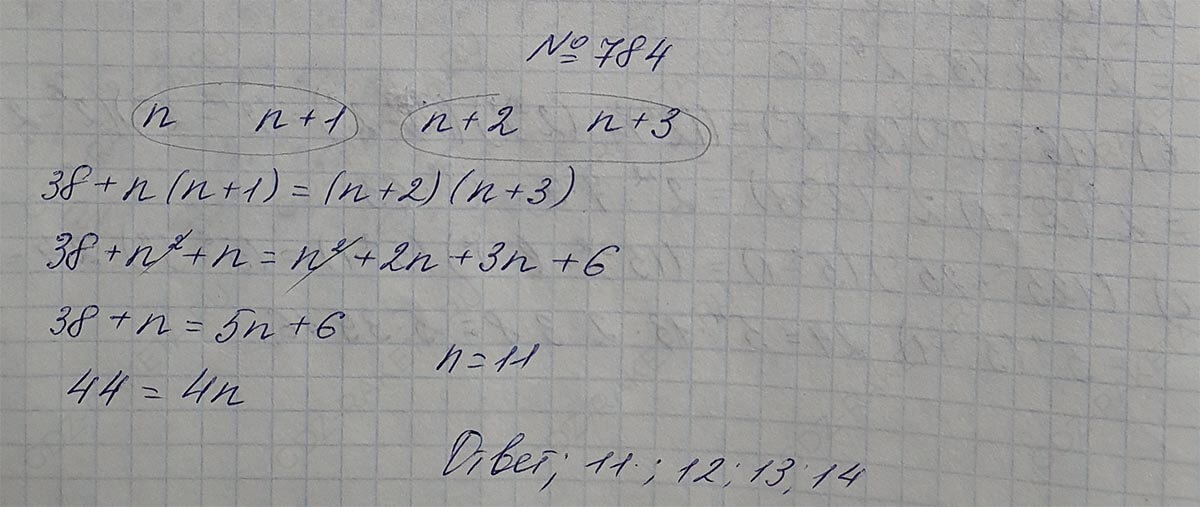 № 784
n n+1 n+2 n+3
38+n(n+1)=(n+2)(n+3)
38+n²+n=n²+2n+3n+6
38+n=5n+6
n=11
44=4n
Ответ; 11.; 12; 13; 14